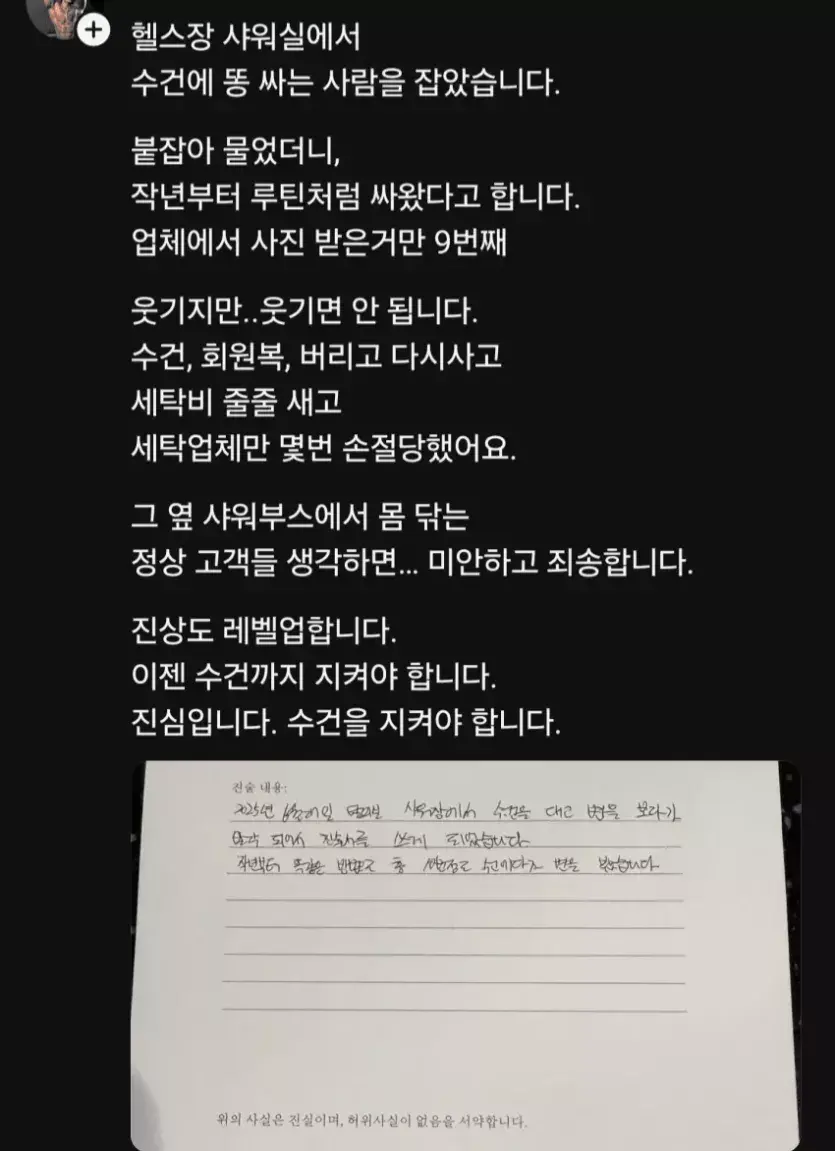 헬스장 샤워실에서
수건에 똥 싸는 사람을 잡았습니다.
붙잡아 물었더니,
작년부터 루틴처럼 싸왔다고 합니다.
업체에서 사진 받은거만 9번째
웃기지만..웃기면 안 됩니다.
수건, 회원복, 버리고 다시사고
세탁비 줄줄 새고
세탁업체만 몇번 손절당했어요.
그 옆 샤워부스에서 몸 닦는
정상 고객들 생각하면... 미안하고 죄송합니다.
진상도 레벨업합니다.
이젠 수건까지 지켜야 합니다.
진심입니다. 수건을 지켜야 합니다.
진술 내용:
2025년 샤워장에서 수건을 대고 변을 보다가
진술서를 쓰게 되었습니다
작년부터 똑같은 방법으로 총 수건에다가 변을 보았습니다
위의 사실은 진실이며, 허위사실이 없음을 서약합니다.